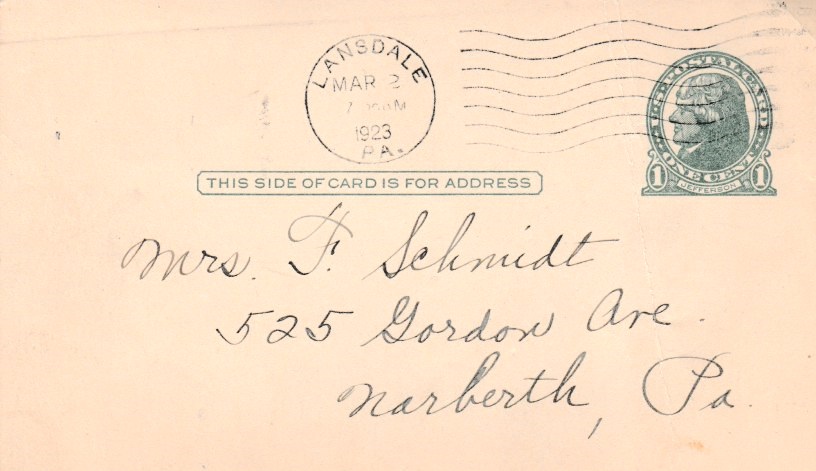 LANSDALE
MAR 2
1923
PA.
U.S. POSTAL CARD
ONE CENT
1 JEFFERSON 1
THIS SIDE OF CARD IS FOR ADDRESS
Mrs. F. Schmidt
525 Gordon Ave.
Narberth, Pa.